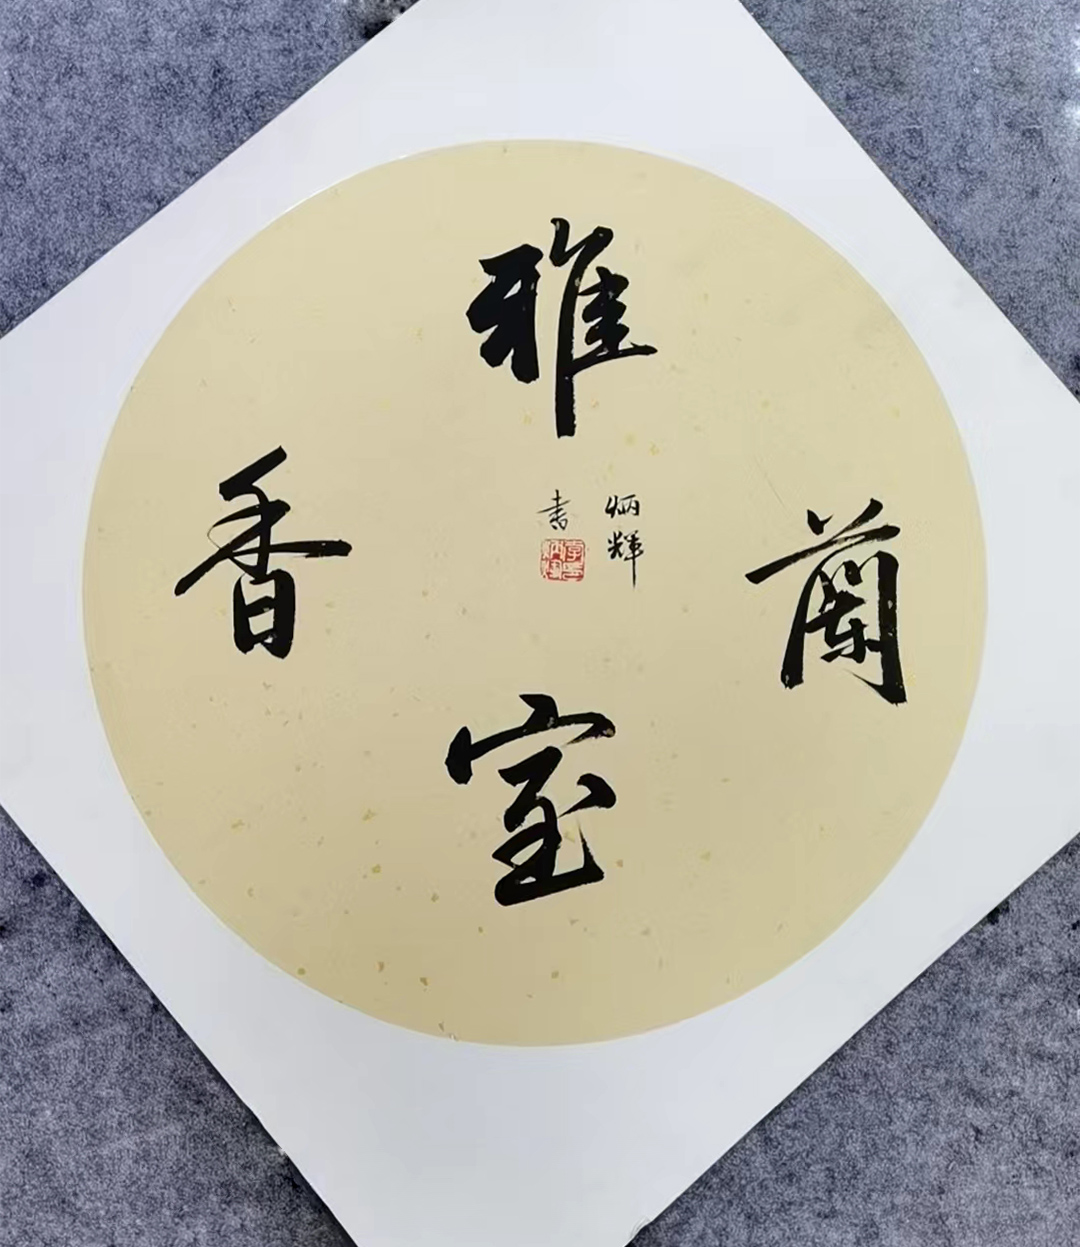 雅
室
蘭
香
炳輝
書